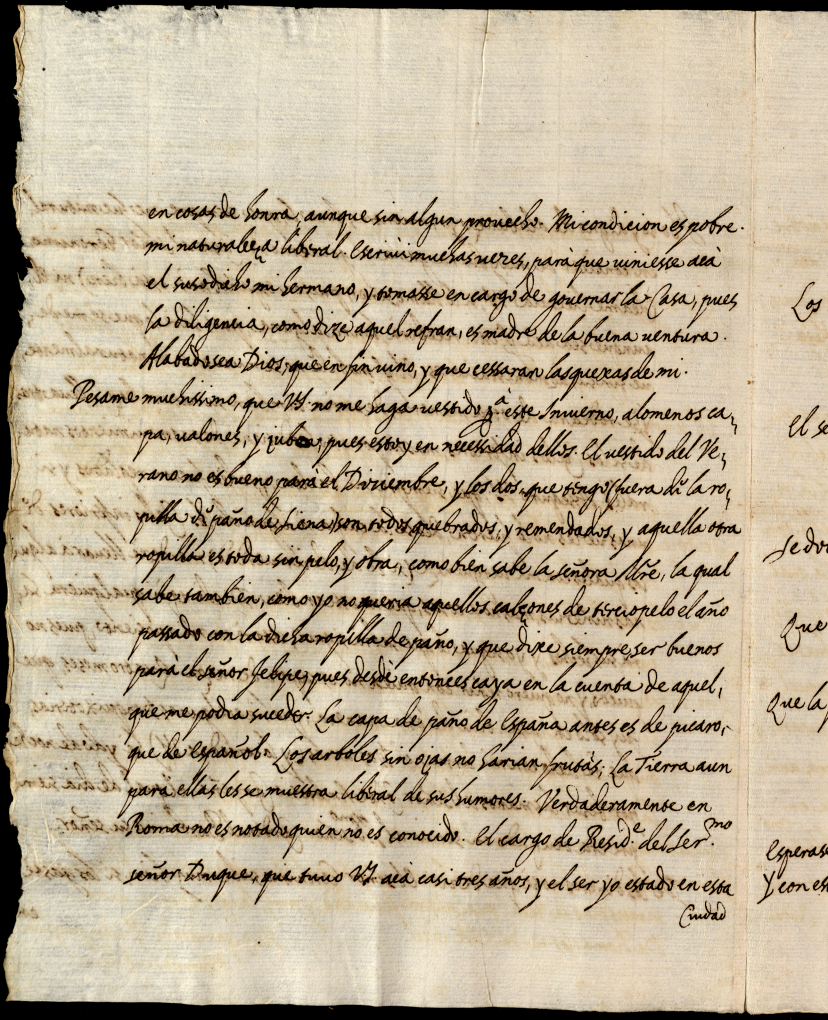 en cosas de honra, aunque sin algun provecho. Mi condicion es pobre.
mi naturaleça liberal. Escriui muchas vezes, parà que viniesse acà
el susodicho mi hermano, y tomasse en cargo de governar la Casa, pues
la diligencia, como dize aquel refran, es madre de la buena ventura.
Alabado sea Dios, que en fin vino, y que cessaran las quexas de mi.
Pesame muchissimo, que VS. no me haga vestido p.ª este Invierno, alomenos ca-
pa, valones, y jubon, pues estoy en necessidad dellos. El vestido del Ve-
rano no es bueno parà el Diciembre, y los dos, que tengo (fuera di la ro-
pilla di paño de Siena) son todos quebrados, y remendados, y aquella otra
ropilla es toda sin pelo, y obra, como bien sabe la señora Mře, la qual
sabe tambien, como yo no queria aquellos calçones de terciopelo el año
passado con la dicha ropilla de paño, y que dixe siempre, ser buenos
parà el señor Felipe, pues desde entonces caya en la cuenta de aquel,
que me podia suceder. La capa de paño de España antes es de picaro,
que de Español. Los arboles sin ojas no harian frutas; La Tierra aun
para ellas les se muestra liberal de sus humores. Verdaderamente en
Roma no es notado quien no es conocido. El cargo de Resid.e del Ser.mo
señor Duque, que tuuo VS. acà casi tres años, y el ser yo estado en esta
Ciudad
Los
El se
Se do
Que
Que la
Esperase
Y con es